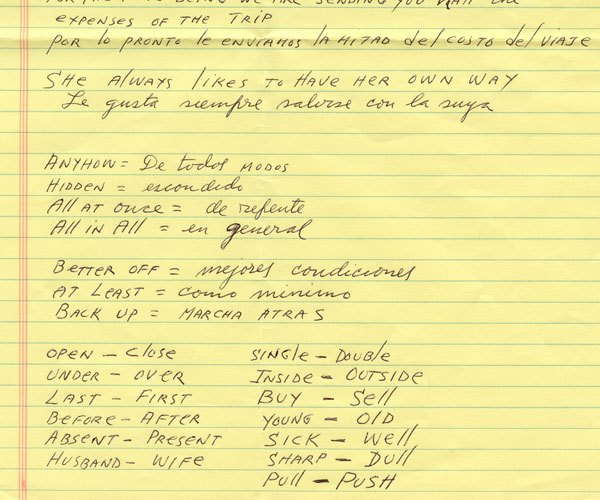 SENDING YOU HALF THE
EXPENSES OF THE TRIP
POR lo PRONTO le ENVIAMOS lA MITAD del COSTO del VIAJE
SHE AlwAYS likES TO HAVE HER OWN WAY
Le gusta siempre salirse con la suya
ANYHOW = De todos MODOS
HIDDEN = escondido
All AT ONCE = de repente
All iN All = en general
BETTER OFF = mejores condiciones
AT LEAST = como minimo
BACK UP = MARCHA ATRAS
OPEN - ClOSE SINGlE - DOUBlE
UNDER - OVER INSIDE - OUTSIDE
LAST - FIRST BUY - SEll
BEFORE - AFTER YOUNG - OlD
ABSENT - PRESENT SICK - WEll
HUSBAND - WIFE SHARP - DUll
PUll - PUSH